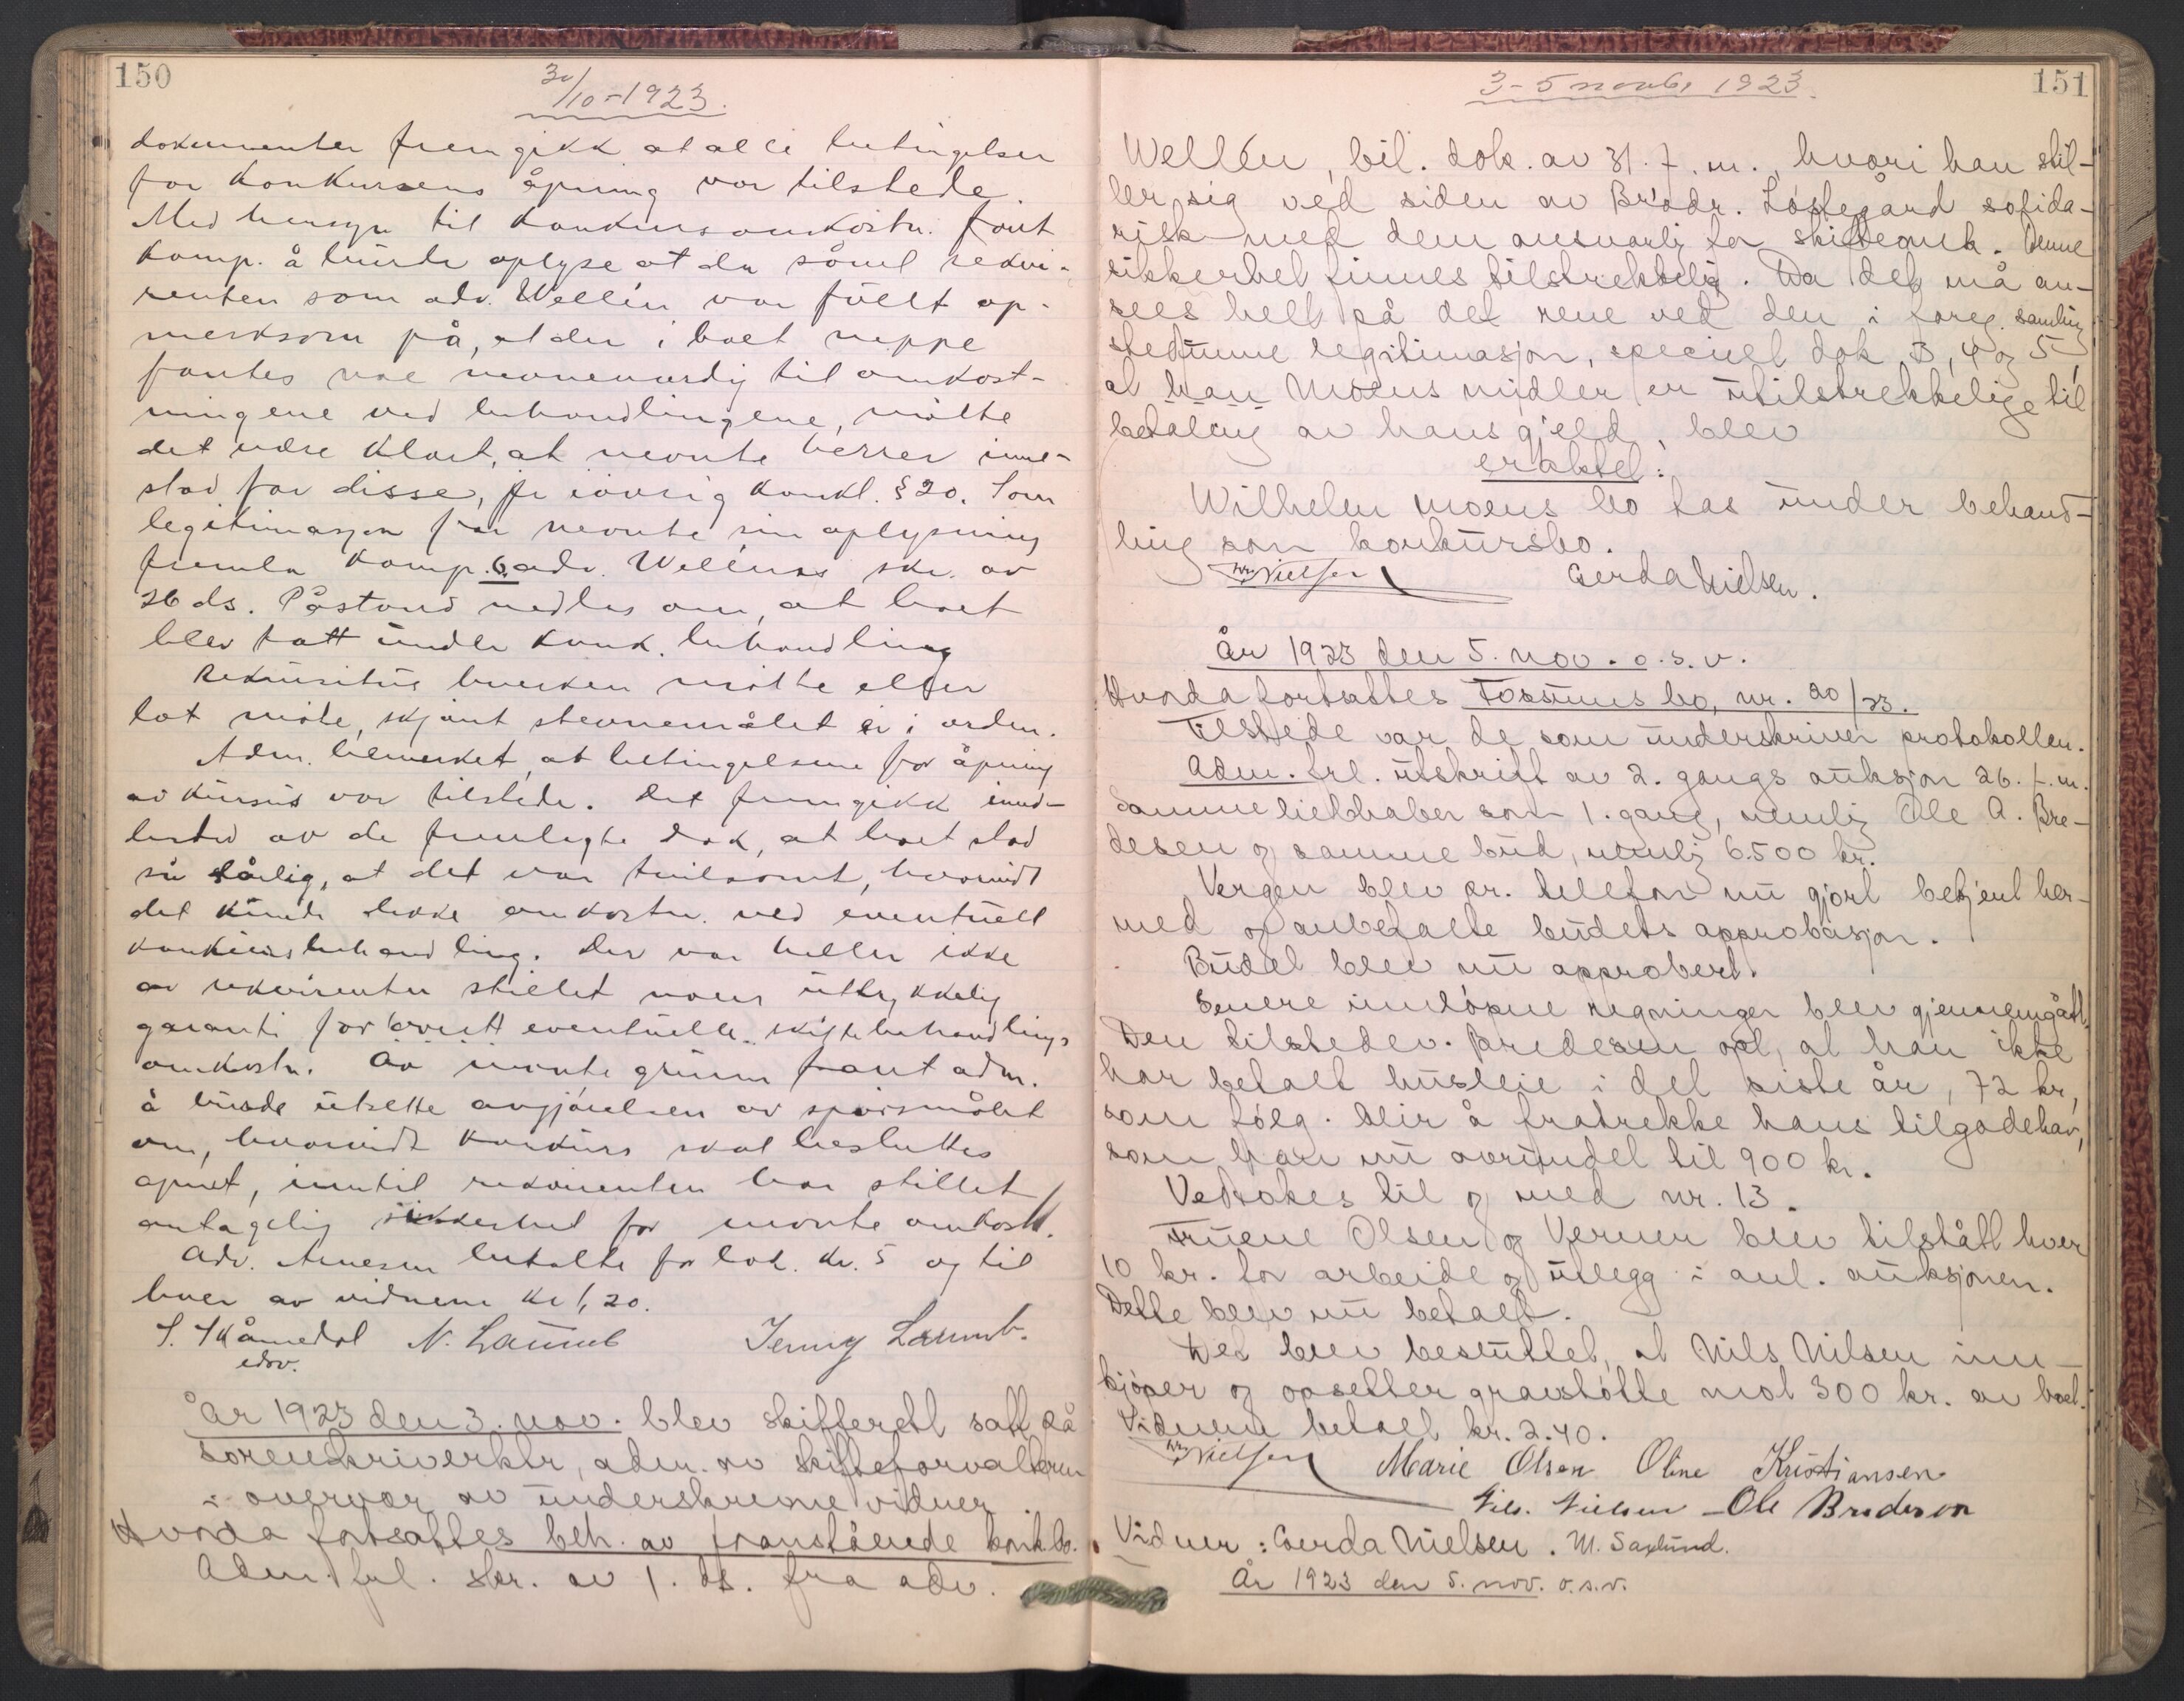 150
30/10-1923.
dokumenter fremgikk at alle betingelser
for konkursens åpning var tilstede.
Med hensyn til konkursomkostn. fant
komp. å burde oplyse at da såvel rekvi-
renten som adv. Wellén var fullt op-
merksom på, at der i boet neppe
fantes noe nevneverdig til omkost-
ningene ved behandlingene, måtte
det være klart, at nevnte herrer inne-
stod for disse, jfr iøvrig konkl. § 20. Som
legitimasjon for nevnte sin oplysning
fremla komp. 6. adv. Welléns skr. av
26 ds. Påstand nedles om, at boet
blev tatt under konk. behandling
Rekvisitus hverken møtte eller
lot møte, skjønt stevnemålet er i orden.
Adm. bemerket, at betingelsene for åpning
av konkurs var tilstede. Det fremgikk imid-
lertid av de fremlagte dok, at boet stod
så dårlig, at det var tvilsomt, hvorvidt
det kunde dekke omkostn. ved eventuell
konkursbehandling. Der var heller ikke
av rekvirenten stillet noen uttrykkelig
garanti for boets eventuelle skiftebehandlings
omkostn. Av nevnte grunn fant adm.
å burde utsette avgjørelsen av spørsmålet
om, hvorvidt konkurs skal besluttes
åpnet, inntil rekvirenten har stillet
antagelig sikkerhet for nevnte omkostn.
Adv. Arnesen betalte for lok. kr. 5 og til
hver av vidnene kr 1,20.
S. Skåmedal N. Laumb Jenny Laumb.
edsv.
År 1923 den 3. nov. blev skifterett satt på
sorenskriverktr, adm. av skifteforvalteren
i overvær av underskrevne vidner.
Hvorda fortsattes beh. av franstående konk.bo.
Adm. frl. skr. av 1. ds. fra adv.
3-5 novbr 1923.
151
Wellén, bil. dok. av 31. f. m., hvori han stil-
ler sig ved siden av Brødr. Løftegård solida-
risk med dem ansvarlig for skifteomk. Denne
sikkerhet finnes tilstrekkelig. Da det må an-
sees helt på det rene ved den i foreg. samling
stedfunne legitimasjon, specielt dok 3, 4 og 5,
at han Moens midler er utilstrekkelige til
betaling av hans gjeld, blev
eraktet:
Wilhelm Moens bo tas under behand-
ling som konkursbo.
Wm Nielsen Gerda Nielsen.
År 1923 den 5. nov. o.s.v.
Hvorda fortsattes Fossums bo, nr. 20/23.
Tilstede var de som underskriver protokollen.
Adm. frl. utskrift av 2. gangs auksjon 26. f. m.
Samme liebhaber som 1. gang, nemlig Ole A. Bre-
desen og samme bud, nemlig 6.500 kr.
Vergen blev pr. telefon nu gjort bekjent her-
med og anbefalte budets approbasjon.
Budet blev nu approbert.
Senere innløpne regninger blev gjennemgått.
Den tilstedev. Bredesen opl, at han ikke
har betalt husleie i det siste år, 72 kr,
som følg. blir å fratrekke hans tilgodehav,
som han nu avrundet til 900 kr.
Vedtokes til og med nr. 13.
Fruene Olsen og Verner blev tilstått hver
10 kr. for arbeide og utlegg i anl. auksjonen.
Dette blev nu betalt.
Det blev besluttet, at Nils Nilsen inn-
kjøper og opsetter gravstøtte mot 300 kr. av boet.
Vidnene betalt kr. 2.40.
Wm Nielsen Marie Olsen Oline Kristiansen
Nils. Nielsen - Ole Bredesen
Vidner: Gerda Nielsen. M. Saxlund.
År 1923 den 5. nov. o.s.v.